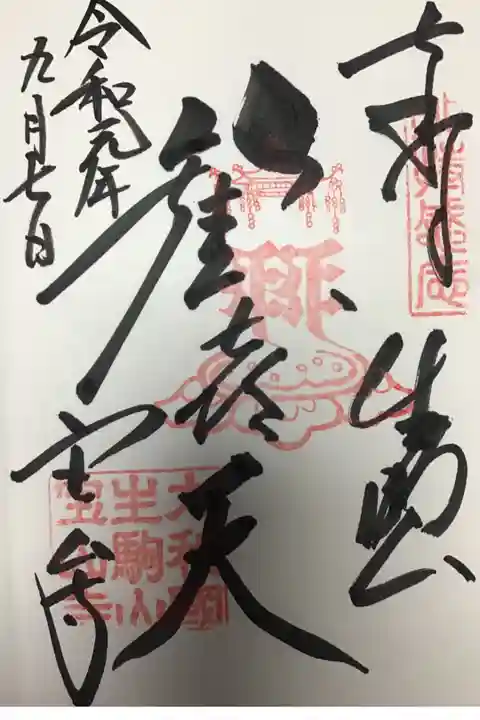 奉拝
生駒山
歓喜天
令和元年
九月七日
宝山寺
大和國
生駒山
宝山寺